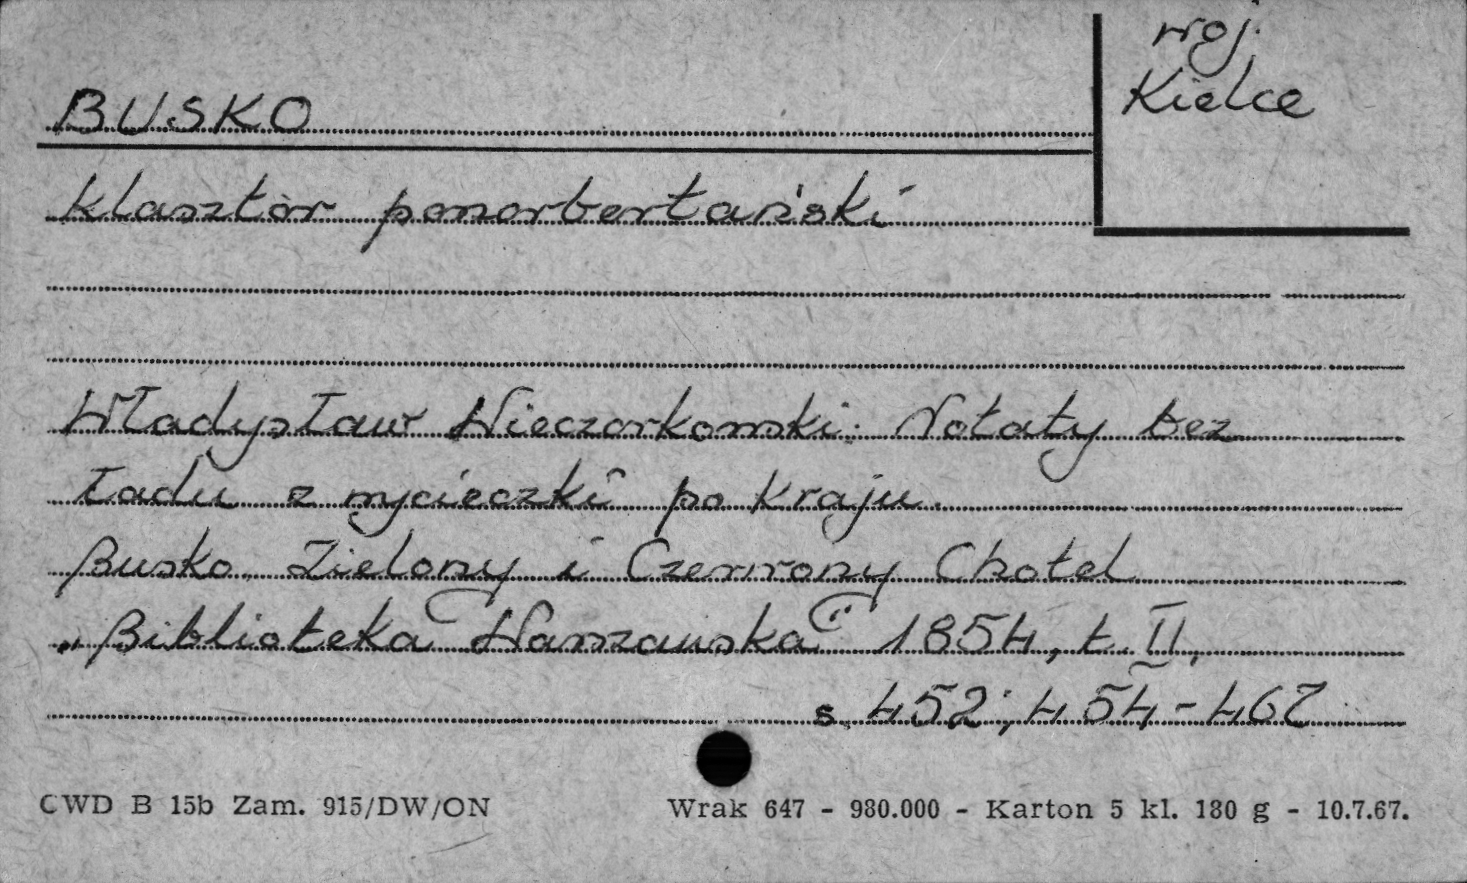 woj.
Kielce
BUSKO
klasztór ponorbertański
Władysław Wieczorkowski: Notaty bez
ładu z wycieczki po kraju.
Busko, Zielony i Czerwony Chotel
„Biblioteka Warszawska" 1854, t. II,
s. 452; 454-467
CWD B 15b Zam. 915/DW/ON
Wrak 647 - 980.000 - Karton 5 kl. 180 g - 10.7.67.